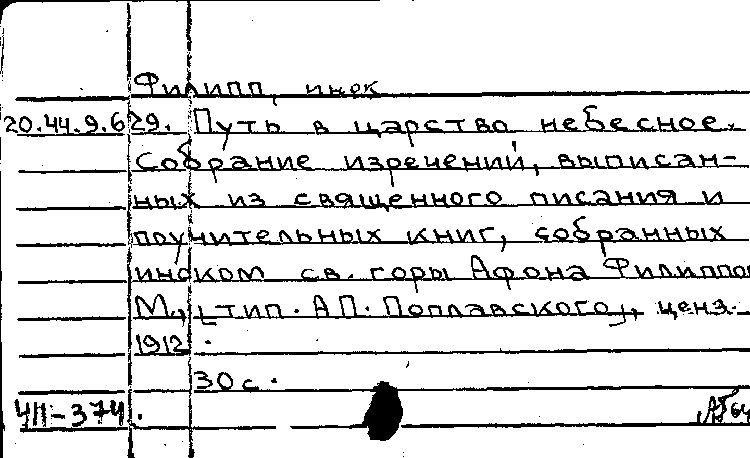 Филипп, инок
20.44.9.629. Путь в царство небесное.
Собрание изречений, выписан-
ных из священного писания и
поучительных книг, собранных
иноком св. горы Афона Филиппом
М., [тип. А.П. Поплавского], ценз.
1912.
30 с.
411-374.